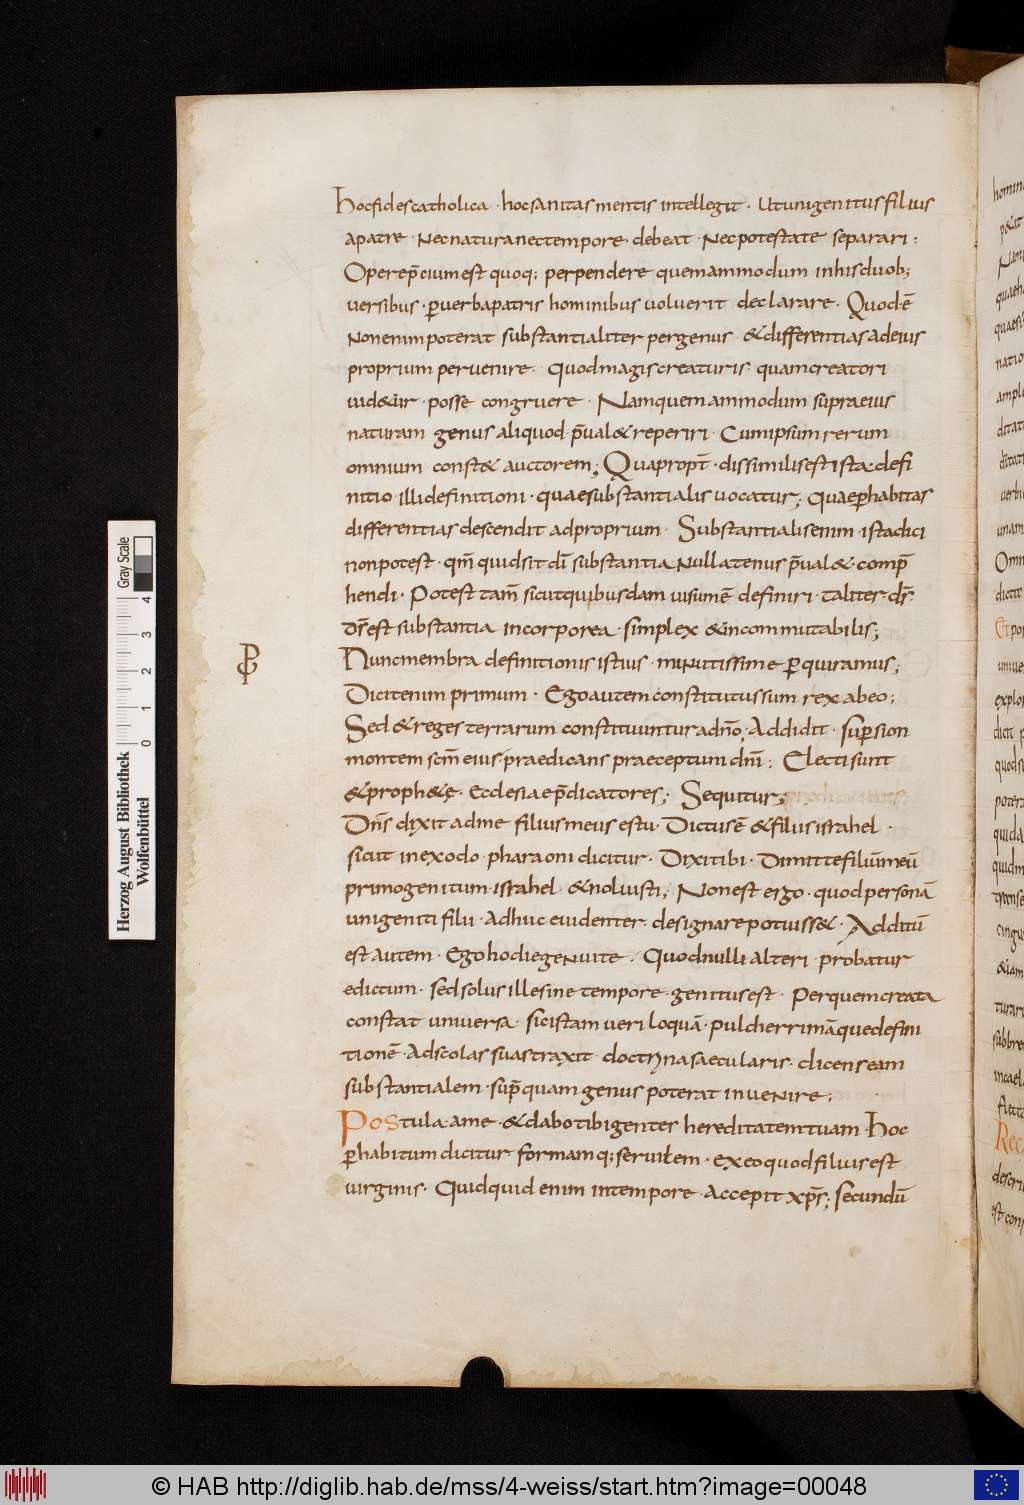 hoc fides catholica · hoc sanitas mentis intellegit · Ut unigenitus filius
a patre · Nec natura nec tempore · debeat · Nec potestate separari ;
Operep̄ cium est quoq; perpendere quemammodum in his duob;
versibus · p̱ uerba patris hominibus uoluerit declarare · Quod ē
Non enim poterat substantialiter per genus · & differentias ad eius
proprium pervenire · Quod magis creaturis quam creatori
uid&ur · posse congruere · Namquemammodum supra eius
naturam genus aliquod p̄ual& reperiri · Cum ipsum rerum
omnium const& auctorem; Quapropt̄ · dissimilis est ista defi
nitio · illi definitioni · quae substantialis uocatur; Quae p̱ habitas
differentias descendit ad proprium · Substantialis enim · ista dici
non potest · qm̄ quid sit dī substantia Nullatenus p̄ual& comp̄
hendi · Potest tam̄ sicut quibusdam uisum ē definiri · taliter · dr̄ ·
Ds̄ est substantia incorporea · simplex & incommutabilis;
Nunc membra definitionis istius · minutissime p̱quiramus;
Dicit enim primum · Ego autem constitutus sum rex ab eo;
Sed & reges terrarum constituuntur a dn̄o; Addidit · sup̱ sion
montem scm̄ eius · praedicans praeceptum dn̄i; Electi sunt
& proph&ę · Ecclesiae p̄dicatores; Sequitur;
Dn̄s dixit ad me filius meus es tu · Dictus ē & filius israhel ·
sicut in exodo pharaoni dicitur · Dixi tibi · Dimitte filiū meū
primogenitum · israhel · & noluisti; Non est ergo · quod personā
unigeniti filii · Adhuc euidenter · designare potuiss& · Additū
est autem · Ego hodie genui te · Quod nulli alteri · probatur
edictum · sed solus ille sine tempore · genitus est · Per quem creata
constat universa · sic istam ueriloquā · pulcherrimāque defini
tionē · Ad scolas suas traxit doctrina saecularis · dicens eam
substantialem · sup̄ quam genus poterat invenire;
Postula a me · & dabo tibi gentes hereditatem tuam · hoc
p̱ habitum dicitur formamq; seruilem · ex eo quod filius est
uirginis · Quidquid enim in tempore · accepit xp̄s; secundū
Herzog August Bibliothek
Wolfenbüttel
0 1 2 3 4
Gray Scale
© HAB http://diglib.hab.de/mss/4-weiss/start.htm?image=00048